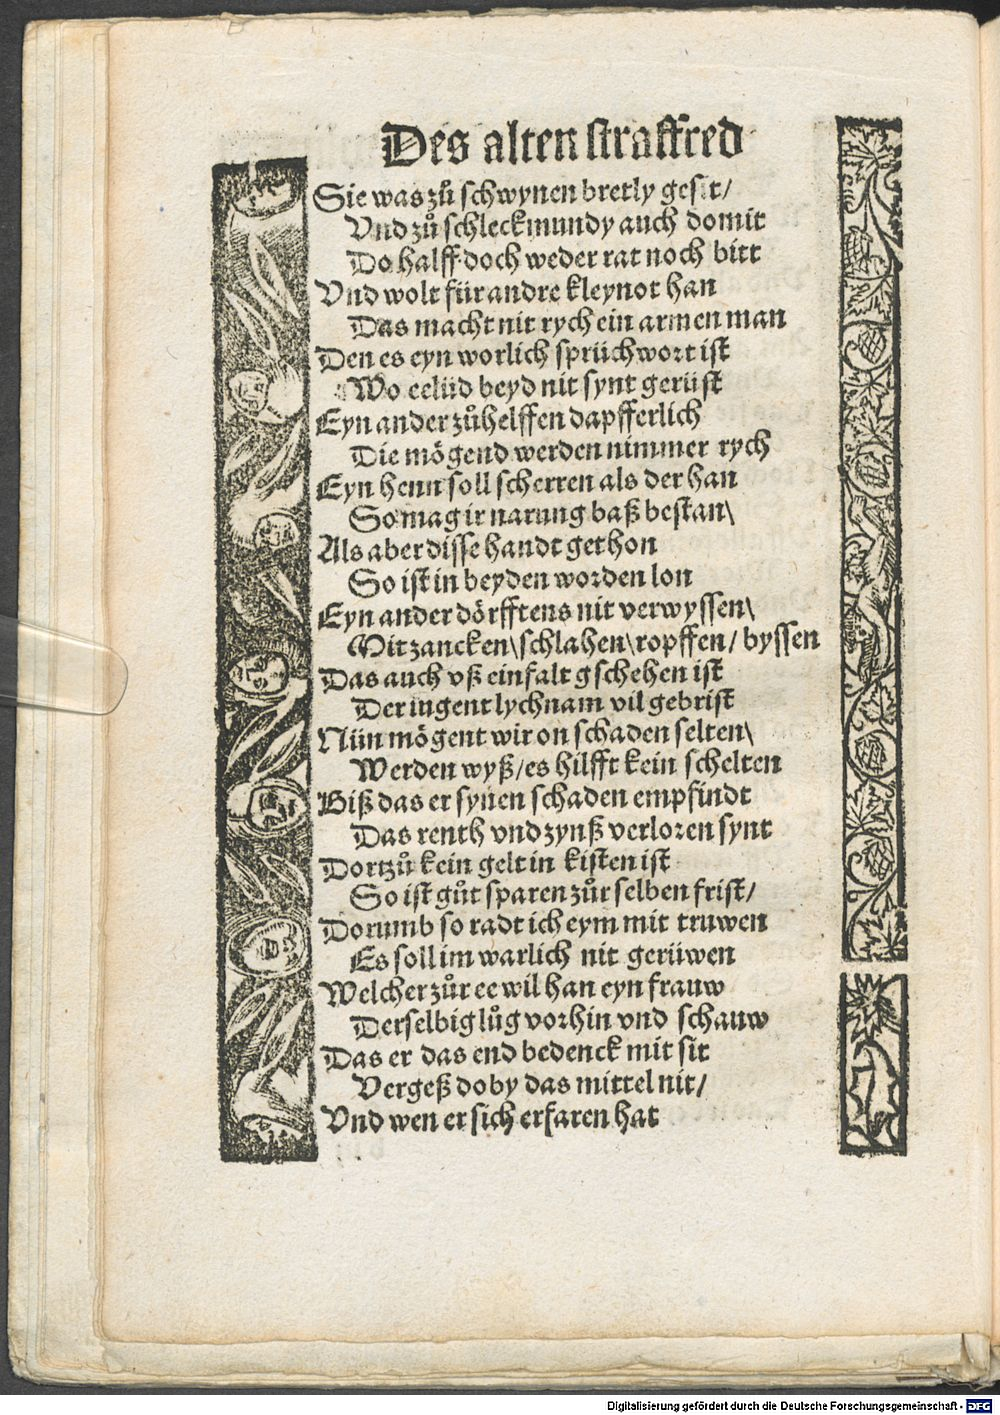 Des alten straffred
Sie was zů schwynen bretly gesit/
Vnd zů schleckmundy auch domit
Do halff doch weder rat noch bitt
Vnd wolt für andre kleynot han
Das macht nit rych ein armen man
Den es eyn worlich sprüchwort ist
Wo eelüd beyd nit synt gerüst
Eyn ander zůhelffen dapfferlich
Die mögend werden nimmer rych
Eyn henn soll scherren als der han
So mag ir narung baß bestan\
Als aber disse handt gethon
So ist in beyden worden lon
Eyn ander dörfftens nit verwyssen\
Mit zancken\schlahen\ropffen/ byssen
Das auch vß einfalt gschehen ist
Der iugent lychnam vil gebrist
Nün mögent wir on schaden selten\
Werden wyß/es hilfft kein schelten
Biß das er synen schaden empfindt
Das renth vnd zynß verloren synt
Dortzů kein gelt in kisten ist
So ist gůt sparen zůr selben frist/
Dorumb so radt ich eym mit truwen
Es soll im warlich nit gerüwen
Welcher zůr ee wil han eyn frauw
Derselbig lůg vorhin vnd schauw
Das er das end bedenck mit sit
Vergeß doby das mittel nit/
Vnd wen er sich erfaren hat
Digitalisierung gefördert durch die Deutsche Forschungsgemeinschaft - DFG